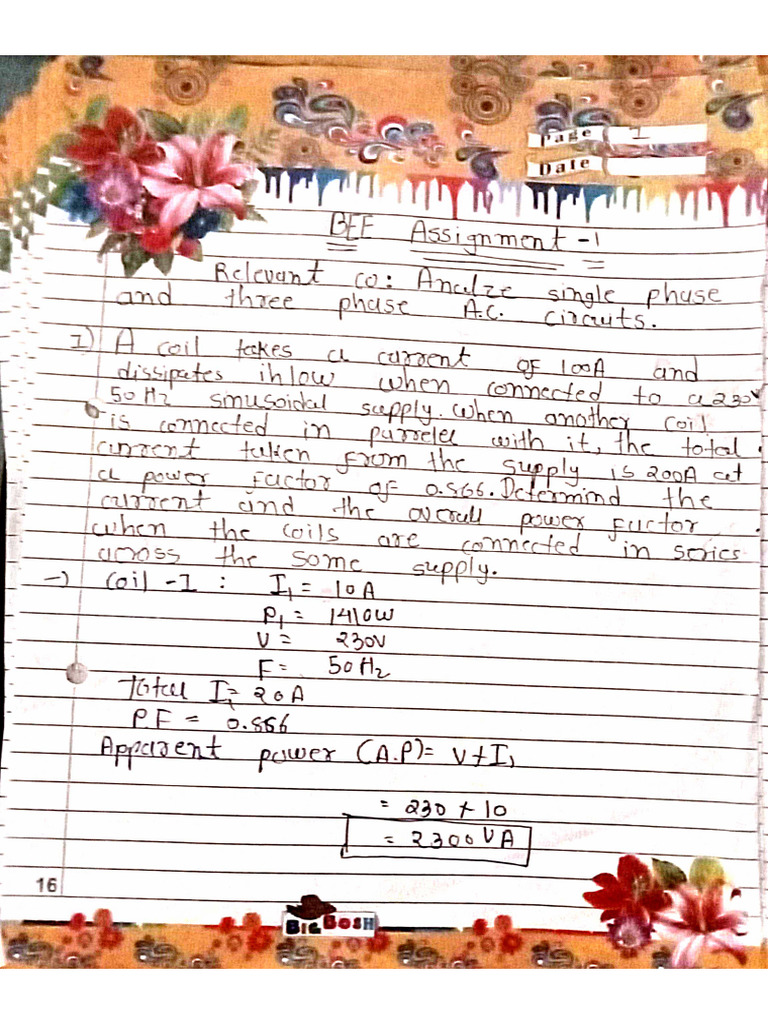 Page 1
Date
BEE Assignment -1
Relevant co: Analze single phase
and three phase A.C. circuits.
I) A coil takes a current of 100A and
dissipates when connected to a 230V
50 Hz sinusoidal supply. when another coil
is connected in parrelel with it, the total
current taken from the supply is 200A at
a power factor of 0.866. Determind the
current and the overall power factor
when the coils are connected in series
across the some supply.
→ Coil -I : I₁ = 10A
P₁ = 1410W
V = 230V
F = 50Hz
Total I = 20A
P.F = 0.866
Apparent power (A.P) = V×I₁
= 230 × 10
= 2300VA
16
BIG BOSH